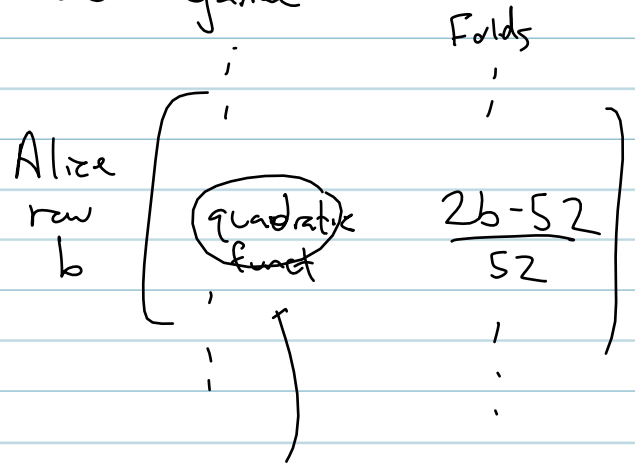 Folds
Alice
row
b
quadratic
funct
2b-52
52